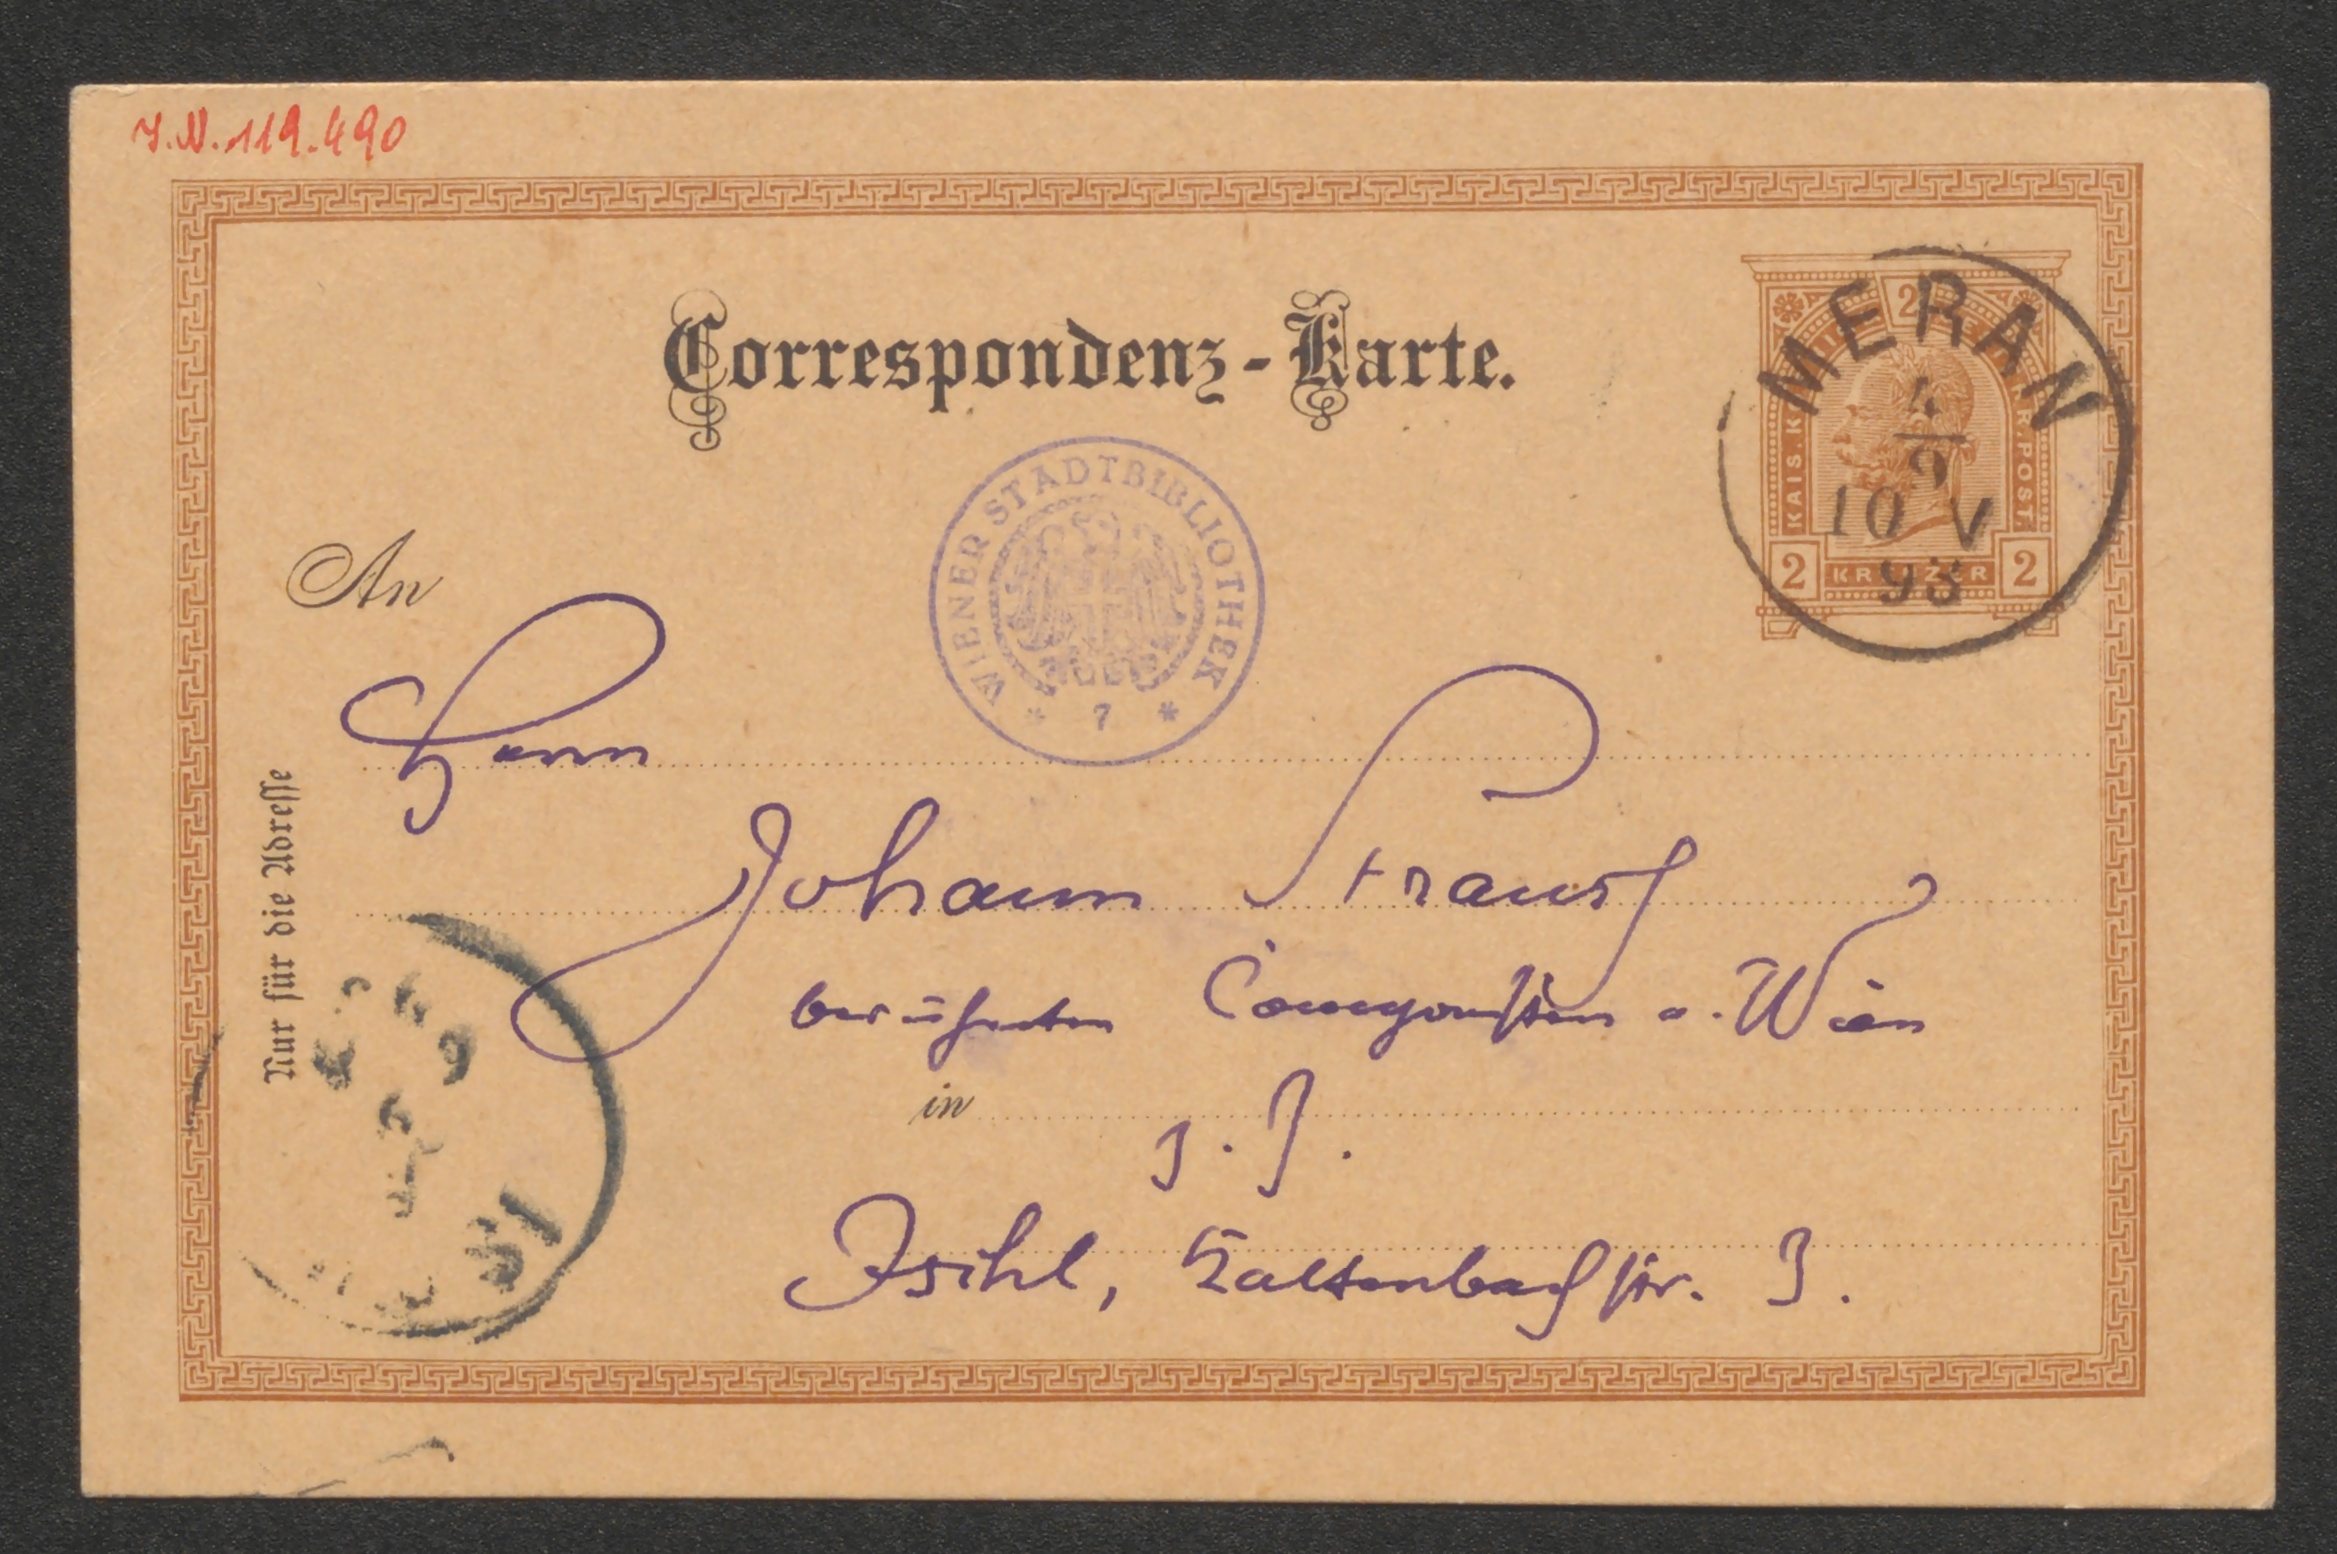 J.N. 119.490
Correspondenz-Karte.
MERAN
4
9
10 V
93
2
KAIS. K. R. POST.
2 KREUZER 2
WIENER STADTBIBLIOTHEK
* 7 *
An
Herrn
Johann Strauß
berühmten Componisten a. Wien
in
z. Z.
Ischl, Kaltenbachstr. 3.
Nur für die Adresse